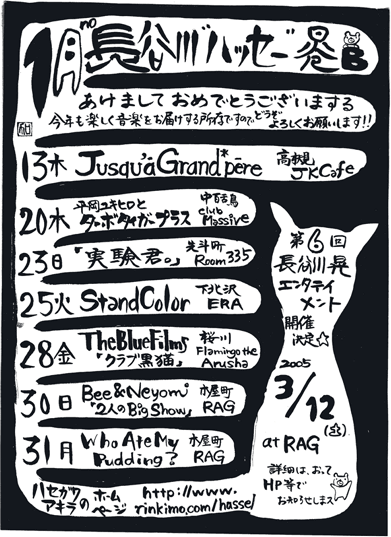 1月no長谷川"ハッセー"晃B
あけまして おめでとうございまする
今年も楽しく音楽をお届けする所存ですので どうぞ よろしくお願いします!!
13木 Jusqu'à Grand-père 高松凡 JKCafe
20木 平岡ユキヒロと ターボタイガープラス 中百舌鳥 club Massive
23日 「実験君。」 先斗町 Room335
25火 StandColor 下北沢 ERA
28金 TheBlueFilms 「クラブ黒猫」 桜川 Flamingo the Arusha
30日 Bee&Neyomi 「2人のBig Show」 木屋町 RAG
31月 Who Ate My Pudding? 木屋町 RAG
ハセガワアキラの ホームページ http://www.rinkimo.com/hassel
第6回
長谷川晃
エンタテイ
メント
開催
決定☆
2005
3/12
(土)
at RAG
詳細は、おって
HP等で
お知らせします